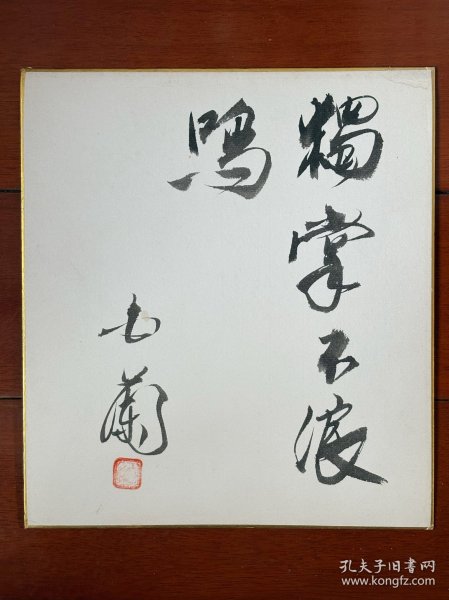 獨掌不浪
鳴
蘭
孔夫子旧书网
www.kongfz.com